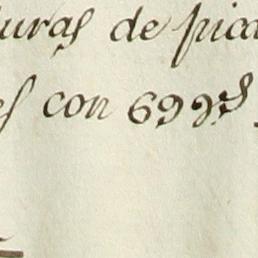 uras de pica
es con 699s